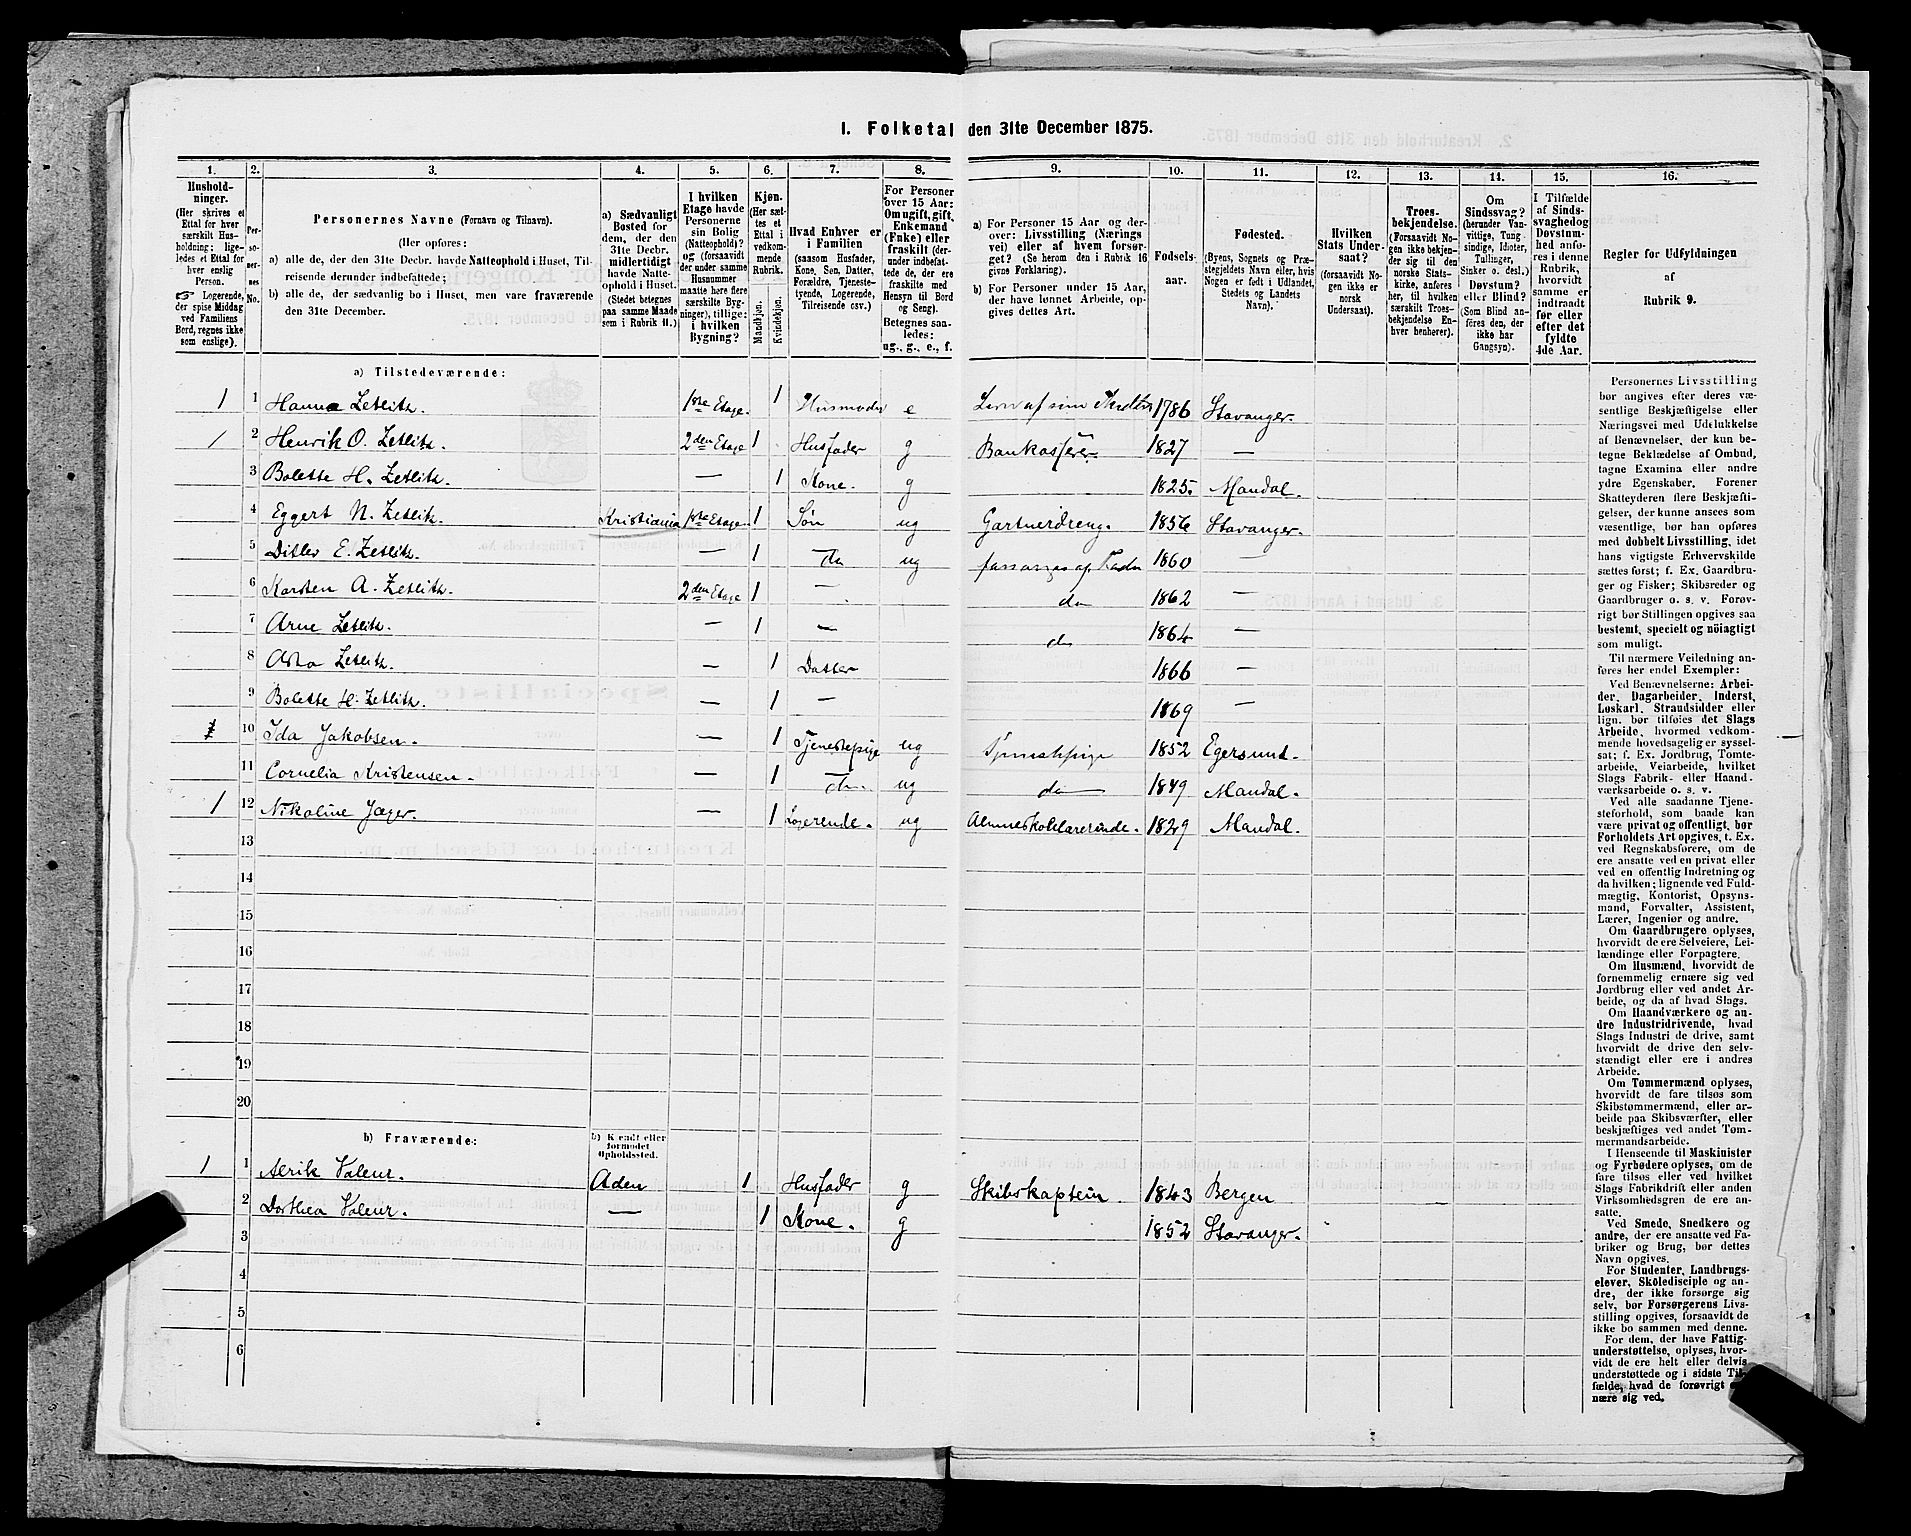 1. Folketal den 31te December 1875.
1. 2. 3. 4. 5. 6. 7. 8. 9. 10. 11. 12. 13. 14. 15. 16.
Hushold-
ninger.
(Her skrives et
Ettal for hver
særskilt Hus-
holdning; lige-
ledes et Ettal for
hver enslig
Person.
☞ Logerende,
der spise Middag
ved Familiens
Bord, regnes ikke
som enslige).
Per-
so-
ner-
nes
No.
Personernes Navne (Fornavn og Tilnavn).
(Her opføres:
a) alle de, der den 31te Decbr. havde Natteophold i Huset, Til-
reisende derunder indbefattede;
b) alle de, der sædvanlig bo i Huset, men vare fraværende
den 31te December.
a) Sædvanligt
Bosted for
dem, der den
31te Decbr.
midlertidigt
havde Natte-
ophold i Huset.
(Stedet betegnes
paa samme Maade
som i Rubrik 11.)
I hvilken
Etage havde
Personerne
sin Bolig
(Natteophold)?
og (forsaavidt
der under samme
Husnummer
maatte høre flere
særskilte Byg-
ninger), tillige:
i hvilken
Bygning?
Kjøn.
(Her sæt-
tes et
Ettal i
vedkom-
mende
Rubrik.
Mandkjøn.
Kvindekjøn.
Hvad Enhver er
i Familien
(saasom Husfader,
Kone, Søn, Datter,
Forældre, Tjeneste-
tyende, Logerende,
Tilreisende osv.)
For Personer
over 15 Aar:
Om ugift, gift,
Enkemand
(Enke) eller
fraskilt (der-
under indbefat-
tede de, der ere
fraskilte med
Hensyn til Bord
og Seng).
Betegnes saa-
ledes:
ug., g., e., f.
a) For Personer 15 Aar og der-
over: Livsstilling (Nærings
vei) eller af hvem forsør-
get? (Se herom den i Rubrik 16
givne Forklaring).
b) For Personer under 15 Aar,
der have lønnet Arbeide, op-
gives dettes Art.
Fødsels-
aar.
Fødested.
(Byens, Sognets og Præ-
stegjeldets Navn eller, hvis
Nogen er født i Udlandet,
Stedets og Landets
Navn).
Hvilken
Stats Under-
saat?
(forsaavidt No-
gen ikke er
norsk
Undersaat).
Troes-
bekjendelse.
(Forsaavidt No-
gen ikke bekjen-
der sig til den
norske Stats-
kirke, anføres
her, til hvilken
særskilt Troes-
bekjendelse En-
hver henhører).
Om
Sindssvag?
(herunder Van-
vittige, Tung-
sindige, Idioter,
Tullinger,
Sinker o. desl.)
Døvstum?
eller Blind?
(Som Blind an-
føres den, der
ikke har
Gangsyn).
I Tilfælde
af Sinds-
svaghed og
Døvstum-
hed anfø-
res i denne
Rubrik,
hvorvidt
samme er
indtraadt
før eller
efter det
fyldte
4de Aar.
Regler for Udfyldningen
af
Rubrik 9.
a) Tilstedeværende:
1 1 Hanna Zetlitz. 1ste Etage. 1 Husmoder e 1786 Stavanger.
1 2 Henrik O. Zetlitz. 2den Etage 1 Husfader g Bankasserer 1827 —
3 Bolette H. Zetlitz. — 1 Kone. g 1825. Mandal.
4 Eggert N. Zetlitz. Kristiania 1ste Etage 1 Søn ug Gartnerdreng. 1856 Stavanger.
5 Ditlev E. Zetlitz. — 1 do ug 1860 —
6 Karsten A. Zetlitz. 2den Etage 1 — do 1862 —
7 Arne Zetlitz. — 1 — do 1864 —
8 Zetlitz. — 1 Datter 1866 —
9 Bolette H. Zetlitz. — 1 — 1869 —
10 Ida Jakobsen. — 1 Tjenestepige ug Tjenestepige 1852 Egersund.
11 Cornelia Kristensen. — 1 do. ug do 1849 Mandal.
1 12 Nikoline Jæger. — 1 Logerende. ug Almueskolelærerinde. 1829 Mandal.
13
14
15
16
17
18
19
20
b) Fraværende:
b) Kjendt eller
formodet
Opholdssted.
1 1 Aerik Valeur. Aden 1 Husfader g Skibskaptein 1843 Bergen
2 Dorthea Valeur. — 1 Kone. g 1852 Stavanger.
3
4
5
6
Personernes Livsstilling
bør angives efter deres væ-
sentlige Beskjæftigelse eller
Næringsvei med Udelukkelse
af Benævnelser, der kun be-
tegne Beklædelse af Ombud,
tagne Examina eller andre
ydre Egenskaber. Forener
Skatteyderen flere Beskjæfti-
gelser, der kunne ansees som
væsentlige, bør han opføres
med dobbelt Livsstilling, idet
hans vigtigste Erhvervskilde
sættes først; f. Ex. Gaardbru-
ger og Fisker; Skibsreder og
Gaardbruger o. s. v. Forøv-
rigt bør Stillingen opgives saa
bestemt, specielt og nöiagtigt
som muligt.
Til nærmere Veiledning an-
føres her endel Exempler:
Ved Benævnelserne: Arbei-
der, Dagarbeider, Inderst,
Løskarl, Strandsidder eller
lign. bør tilføies det Slags
Arbeide, hvormed vedkom-
mende hovedsagelig er syssel-
sat; f. Ex. Jordbrug, Tomte-
arbeide, Veiarbeide, hvilket
Slags Fabrik- eller Haand-
værksarbeide o. s. v.
Ved alle saadanne Tjene-
steforhold, som baade kan
være privat og offentligt, bør
Forholdets Art opgives, t. Ex.
ved Regnskabsførere, om de
ere ansatte ved en privat eller
ved en offentlig Indretning og
da hvilken; lignende ved Fuld-
mægtig, Kontorist, Opsyns-
mand, Forvalter, Assistent,
Lærer, Ingeniør og andre.
Om Gaardbrugere oplyses,
hvorvidt de ere Selveiere, Lei-
lændinge eller Forpagtere.
Om Husmænd, hvorvidt de
fornemmelig ernære sig ved
Jordbrug eller ved andet Ar-
beide, og da af hvad Slags.
Om Haandværkere og an-
dre Industridrivende, hvad
Slags Industri de drive, samt
hvorvidt de drive den selv-
stændigt eller ere i andres
Arbeide.
Om Tømmermænd oplyses,
hvorvidt de fare tilsøs som
Skibstømmermænd, eller ar-
beide paa Skibsværfter, eller
beskjæftiges ved andet Tøm-
mermandsarbeide.
I Henseende til Maskinister
og Fyrbødere oplyses, om de
fare tilsøs eller ved hvilket
Slags Fabrikdrift eller anden
Virksomhedsgren de ere an-
satte.
Ved Smede, Snedkere og
andre, der ere ansatte ved Fa-
briker og Brug, bør dettes
Navn opgives.
For Studenter, Landbrugs-
elever, Skoledisciple og an-
dre, der ikke forsørge sig
selv, bør Forsørgerens Livs-
stilling opgives, forsaavidt de
ikke bo sammen med denne.
For dem, der have Fattig-
understøttelse, oplyses, hvor-
vidt de ere helt eller delvis
understøttede og i sidste Til-
fælde, hvad de forøvrigt
nære sig ved.